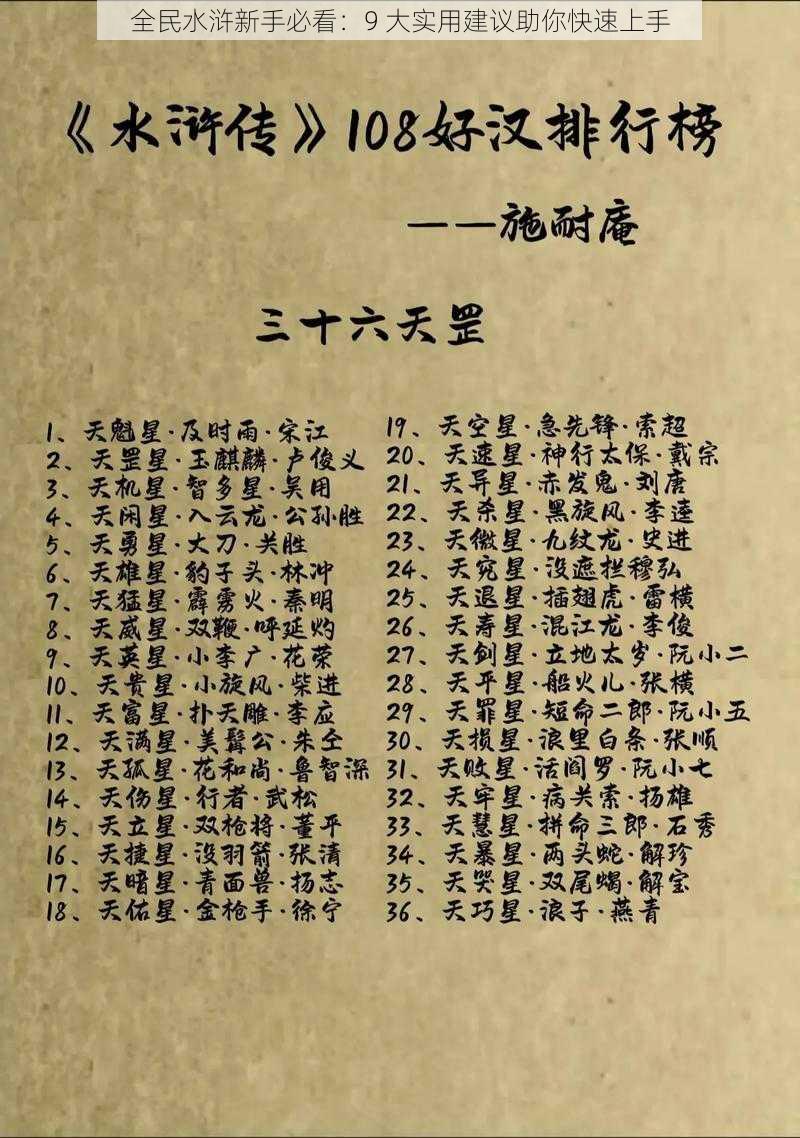 全民水浒新手必看：9 大实用建议助你快速上手
《水浒传》108好汉排行榜
——施耐庵
三十六天罡
1、天魁星·及时雨·宋江
2、天罡星·玉麒麟·卢俊义
3、天机星·智多星·吴用
4、天闲星·入云龙·公孙胜
5、天勇星·大刀·关胜
6、天雄星·豹子头·林冲
7、天猛星·霹雳火·秦明
8、天威星·双鞭·呼延灼
9、天英星·小李广·花荣
10、天贵星·小旋风·柴进
11、天富星·扑天雕·李应
12、天满星·美髯公·朱仝
13、天孤星·花和尚·鲁智深
14、天伤星·行者·武松
15、天立星·双枪将·董平
16、天捷星·没羽箭·张清
17、天暗星·青面兽·扬志
18、天佑星·金枪手·徐宁
19、天空星·急先锋·索超
20、天速星·神行太保·戴宗
21、天异星·赤发鬼·刘唐
22、天杀星·黑旋风·李逵
23、天微星·九纹龙·史进
24、天究星·没遮拦穆弘
25、天退星·插翅虎·雷横
26、天寿星·混江龙·李俊
27、天剑星·立地太岁·阮小二
28、天平星·船火儿·张横
29、天罪星·短命二郎·阮小五
30、天损星·浪里白条·张顺
31、天败星·活阎罗·阮小七
32、天牢星·病关索·扬雄
33、天慧星·拼命三郎·石秀
34、天暴星·两头蛇·解珍
35、天哭星·双尾蝎·解宝
36、天巧星·浪子·燕青